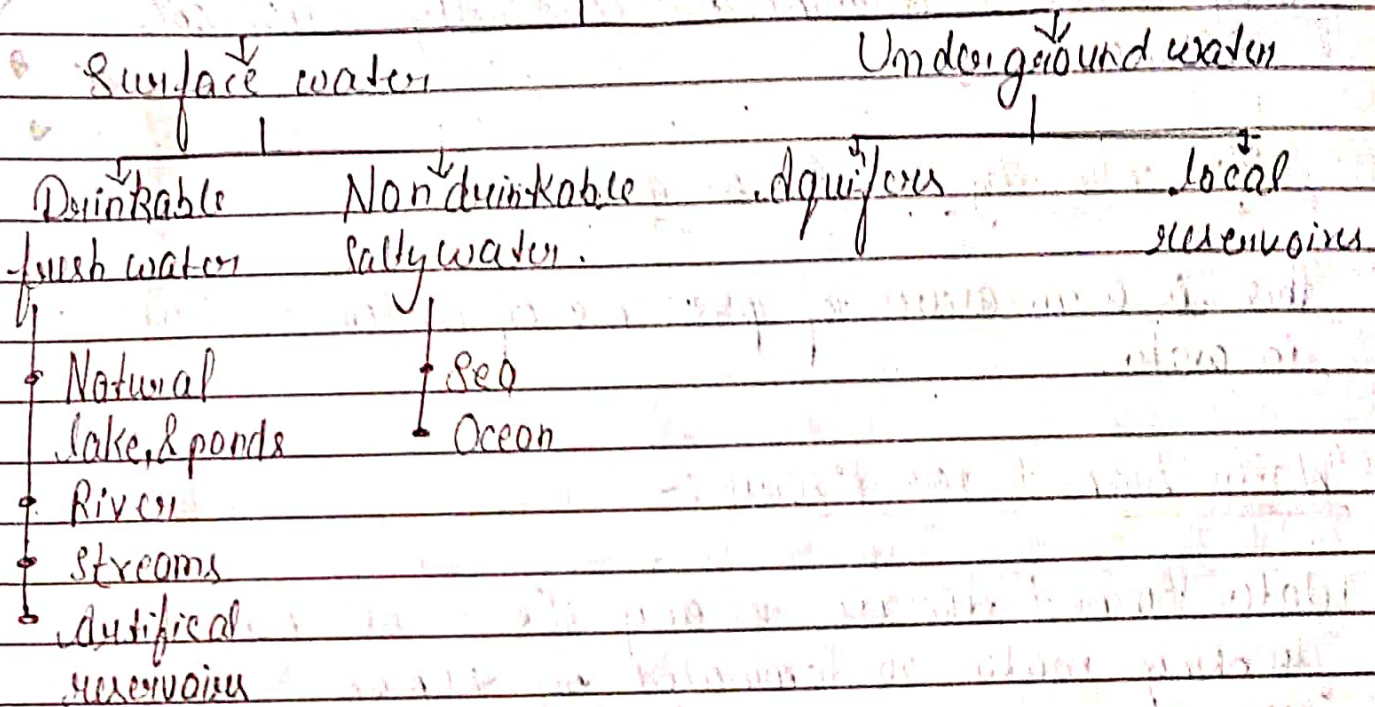 Surface water
Underground water
Drinkable
fresh water
Non drinkable
Salty water.
Aquifers
local
reservoires
Natural
lake, & ponds
River
Streams
Artifical
reservoirs
Sea
Ocean